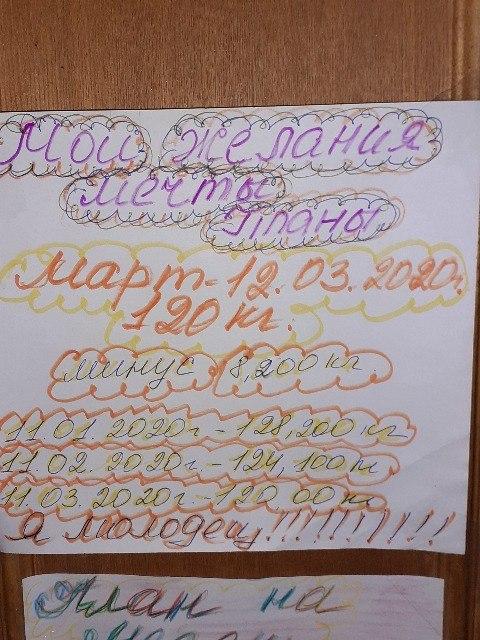 Мои желания
мечты
Планы
Март - 12.03.2020г.
120 кг.
минус 8,200 кг.
11.01.2020г - 128,200 кг
11.02.2020г. - 124,100 кг
11.03.2020г. - 120,00 кг
Я молодец!!!!!!!!!!
План на